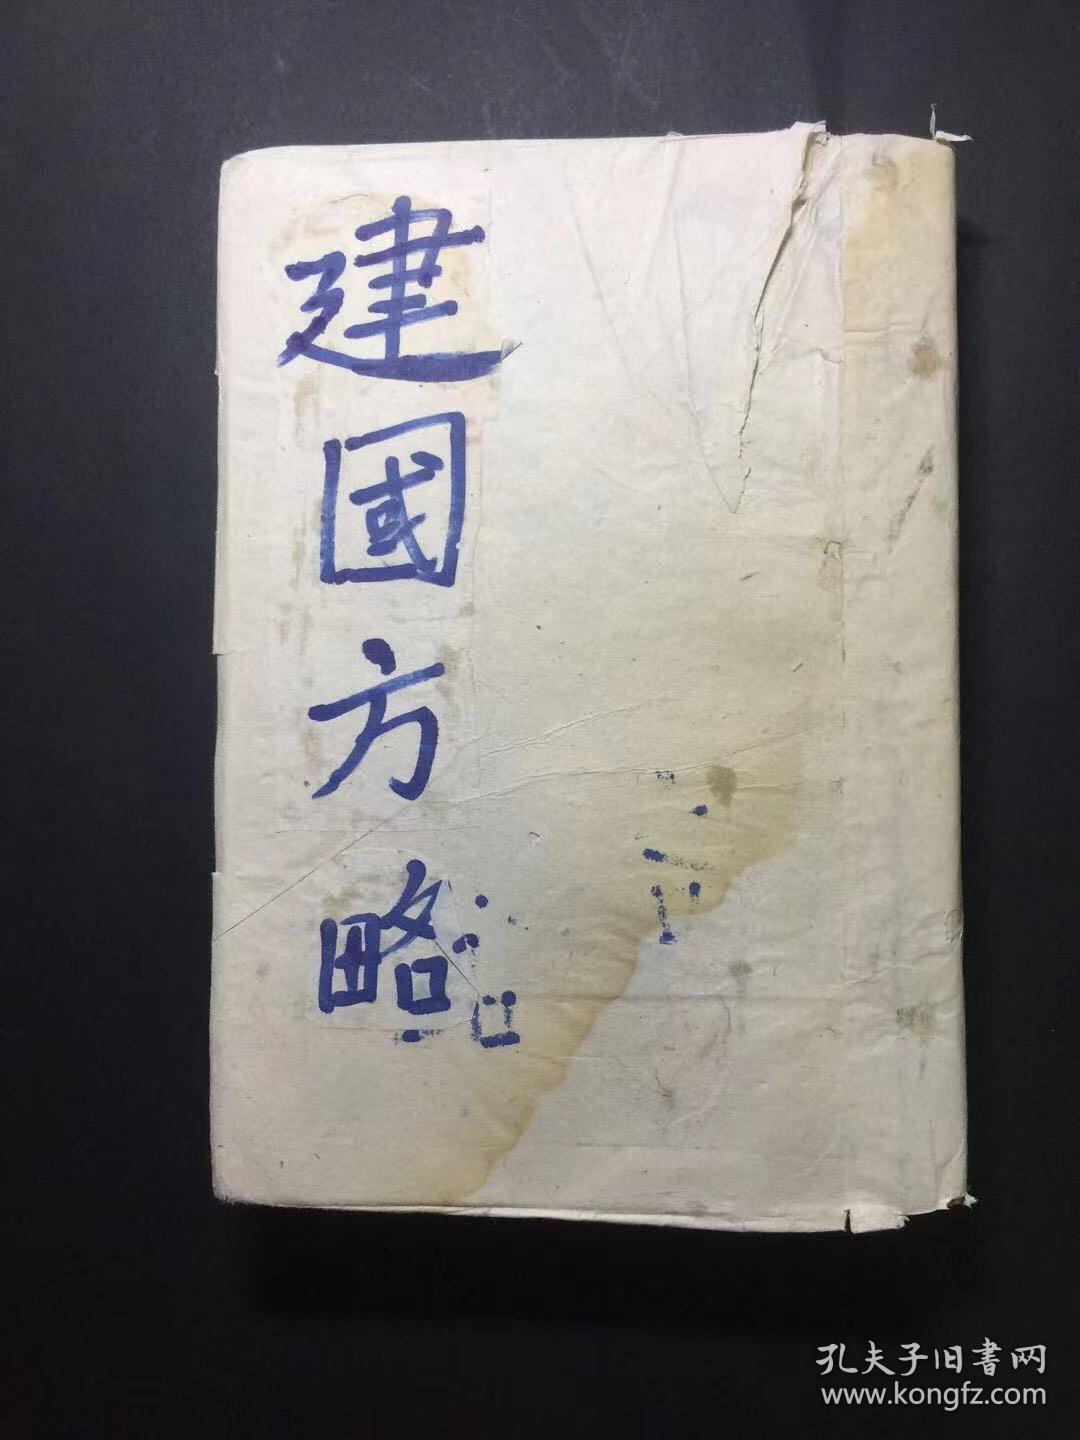 建國方略
孔夫子旧書网
www.kongfz.com